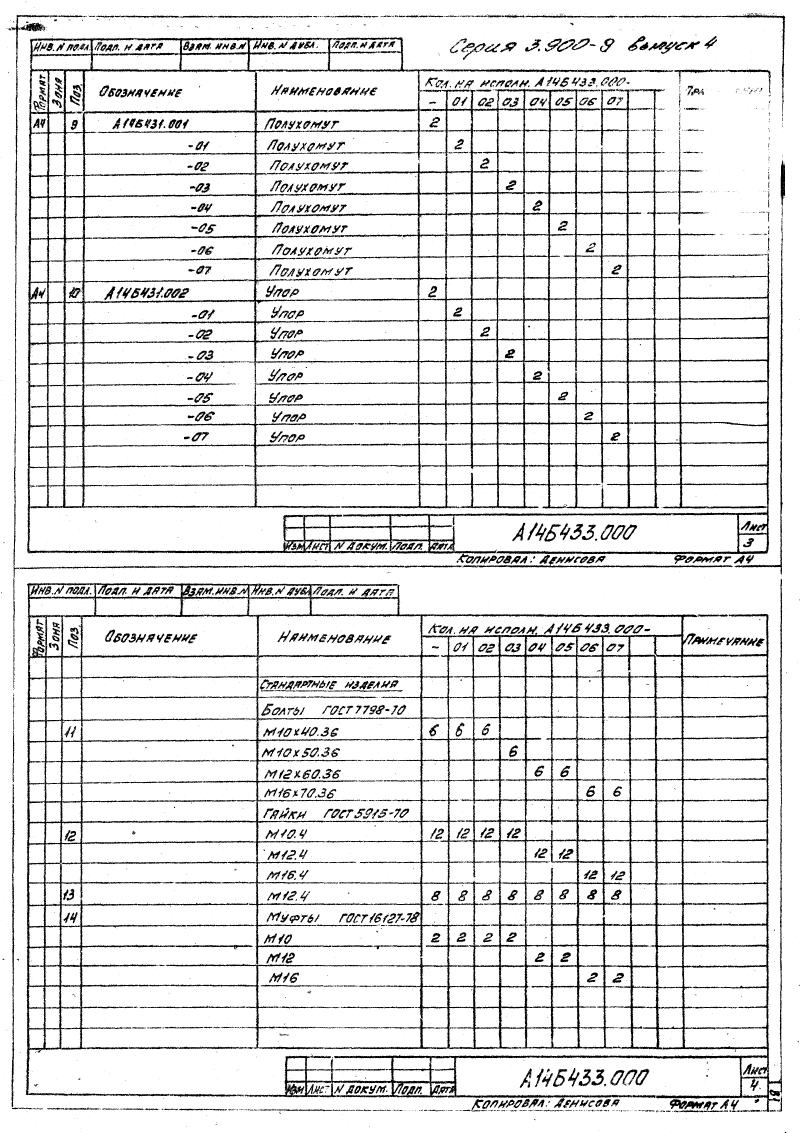 Инв. N подл. Подп. и дата Взам. инв. N Инв. N дубл. Подп. и дата
Серия 3.900-9 выпуск 4
Формат Зона Поз. Обозначение Наименование Кол. на исполн. А14Б433.000-
- 01 02 03 04 05 06 07
А4 9 А14Б431.001 Полухомут 2
-01 Полухомут 2
-02 Полухомут 2
-03 Полухомут 2
-04 Полухомут 2
-05 Полухомут 2
-06 Полухомут 2
-07 Полухомут 2
А4 10 А14Б431.002 Упор 2
-01 Упор 2
-02 Упор 2
-03 Упор 2
-04 Упор 2
-05 Упор 2
-06 Упор 2
-07 Упор 2
А14Б433.000 Лист
3
Изм Лист N докум. Подп. Дата
Копировал: Денисова Формат А4
Инв. N подл. Подп. и дата Взам. инв. N Инв. N дубл Подп. и дата
Формат Зона Поз. Обозначение Наименование Кол. на исполн. А14Б433.000- Примечание
- 01 02 03 04 05 06 07
Стандартные изделия
Болты ГОСТ 7798-70
11 М10х40.36 6 6 6
М10х50.36 6
М12х60.36 6 6
М16х70.36 6 6
Гайки ГОСТ 5915-70
12 М10.4 12 12 12 12
М12.4 12 12
М16.4 12 12
13 М12.4 8 8 8 8 8 8 8 8
14 Муфты ГОСТ 16127-78
М10 2 2 2 2
М12 2 2
М16 2 2
А14Б433.000 Лист
4
Изм Лист N докум. Подп. Дата
Копировал: Денисова Формат А4